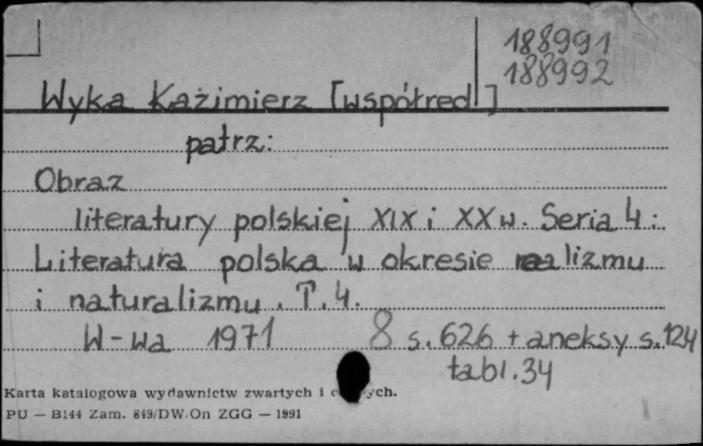 188991
188992
Wyka Kazimierz [współred.]
patrz:
Obraz
literatury polskiej XIX i XX w. Seria 4:
Literatura polska w okresie realizmu
i naturalizmu. T. 4.
W-wa 1971 8 s. 626 + aneksy s. 124
tabl. 34
Karta katalogowa wydawnictw zwartych i
PU — B144 Zam. 849/DW.On ZGG — 1991